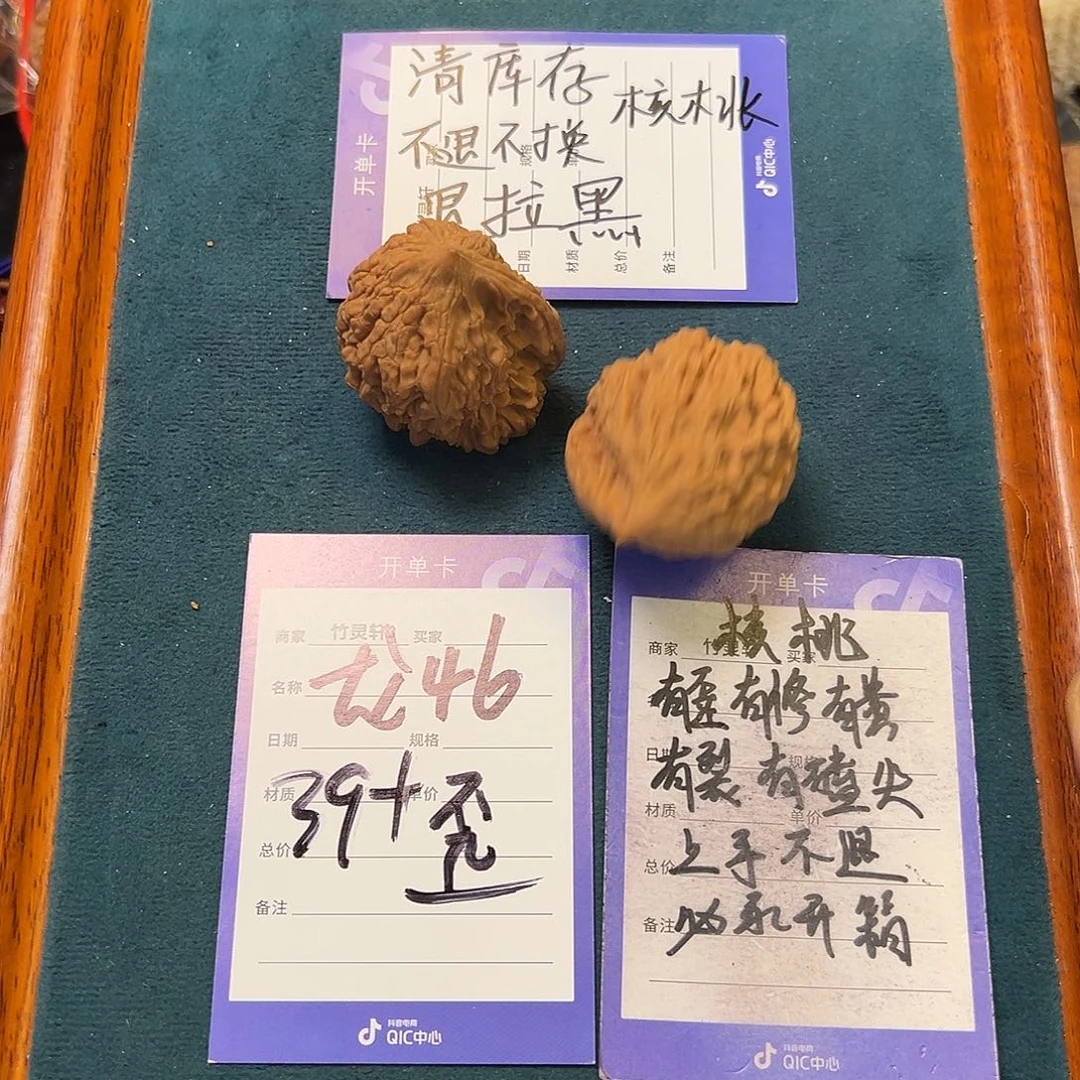 清库存
核桃
不退不换
退拉黑
开单卡
日期
材质
总价
备注
抖音电商
QIC中心
开单卡
商家 竹灵轩 买家
名称
龙46
日期 规格
材质 单价
39+歪
总价
备注
抖音电商
QIC中心
开单卡
商家 竹灵轩 买家
核桃
有歪有修有黄
日期 规格
有裂有揸尖
材质 单价
总价
上手不退
备注
必录开箱
抖音电商
QIC中心